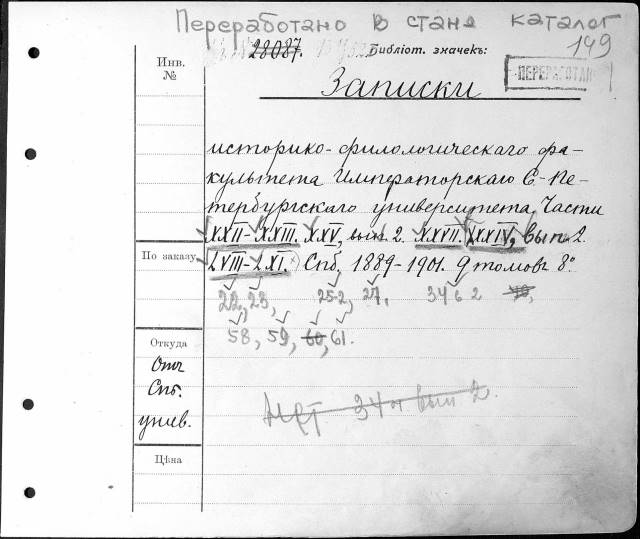 Переработано в стане каталог
Инв. №
28087.
Библіот. значекъ:
149
ПЕРЕРАБОТАН
Записки
историко-филологическаго фа-
культета Императорскаго С.-Пе-
тербургскаго университета. Части
XXII-XXIII. XXV, вып. 2. XXVII. XXXIV, вып. 2.
По заказу
LVIII-LXI. Спб. 1889-1901. 9 томовъ 8°.
22, 23, 25-2, 27, 34 в 2
58, 59, 60, 61.
Откуда
Отъ
Спб.
унив.
Нет 34 вып 2.
Цѣна